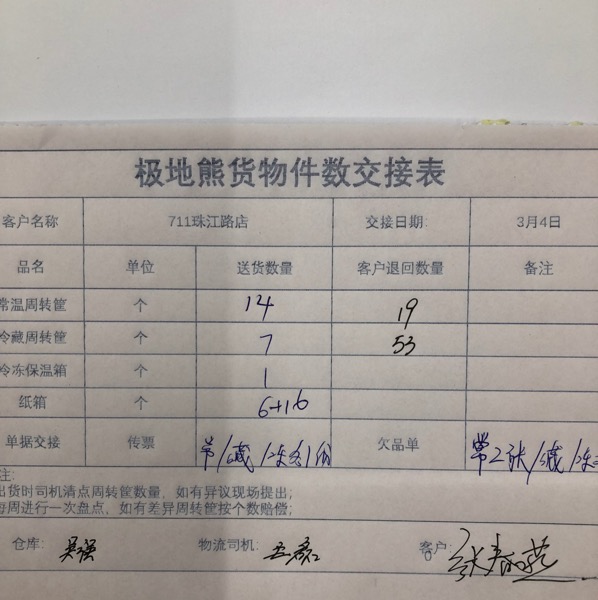 极地熊货物件数交接表
客户名称 711珠江路店 交接日期: 3月4日
品名 单位 送货数量 客户退回数量 备注
常温周转筐 个 14 19
冷藏周转筐 个 7 53
冷冻保温箱 个 1
纸箱 个 6+16
单据交接 传票 常/藏/冻各1份 欠品单 常2张/藏/冻
注:
出货时司机清点周转筐数量，如有异议现场提出;
每周进行一次盘点，如有差异周转筐按个数赔偿;
仓库: 吴强 物流司机: 客户: